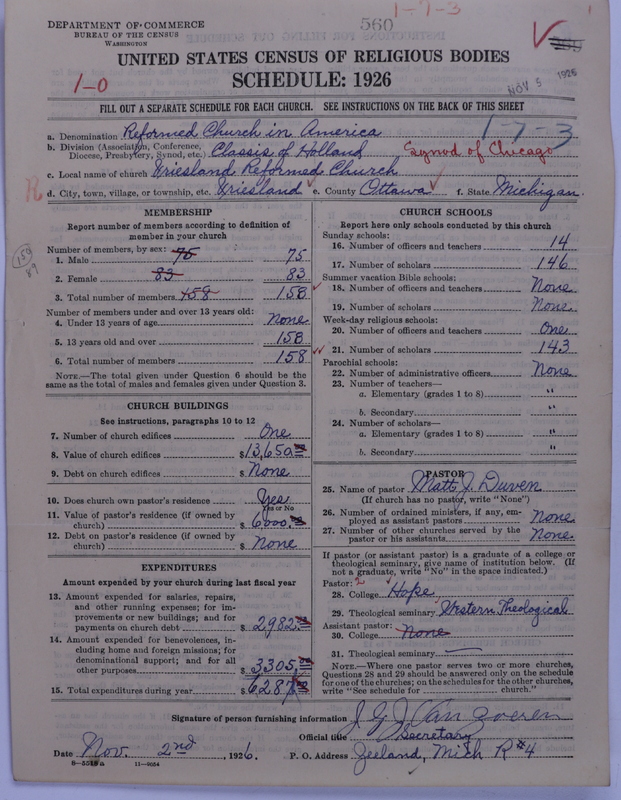 560
1-7-3
DEPARTMENT OF COMMERCE
BUREAU OF THE CENSUS
WASHINGTON
UNITED STATES CENSUS OF RELIGIOUS BODIES
SCHEDULE: 1926
NOV 5 1926
1-0
FILL OUT A SEPARATE SCHEDULE FOR EACH CHURCH. SEE INSTRUCTIONS ON THE BACK OF THIS SHEET
a. Denomination Reformed Church in America 1-7-3
b. Division (Association, Conference, Diocese, Presbytery, Synod, etc.) Classis of Holland Synod of Chicago
c. Local name of church Vriesland Reformed Church
d. City, town, village, or township, etc. Vriesland e. County Ottawa f. State Michigan
MEMBERSHIP
Report number of members according to definition of
member in your church
Number of members, by sex:
1. Male 75 75
2. Female 83 83
3. Total number of members 158 158
Number of members under and over 13 years old:
4. Under 13 years of age None
5. 13 years old and over 158
6. Total number of members 158
NOTE.—The total given under Question 6 should be
same as the total of males and females given under Question 3.
CHURCH BUILDINGS
See instructions, paragraphs 10 to 12
7. Number of church edifices One
8. Value of church edifices $13,650.
9. Debt on church edifices $ None
10. Does church own pastor's residence Yes
Yes or No
11. Value of pastor's residence (if owned by
church) $6000.
12. Debt on pastor's residence (if owned by
church) $ None
EXPENDITURES
Amount expended by your church during last fiscal year
13. Amount expended for salaries, repairs,
and other running expenses; for im-
provements or new buildings; and for
payments on church debt $ 2982
14. Amount expended for benevolences, in-
cluding home and foreign missions; for
denominational support; and for all
other purposes $ 3305
15. Total expenditures during year $ 6287
CHURCH SCHOOLS
Report here only schools conducted by this church
Sunday schools:
16. Number of officers and teachers 14
17. Number of scholars 146
Summer vacation Bible schools:
18. Number of officers and teachers None
19. Number of scholars None
Week-day religious schools:
20. Number of officers and teachers One
21. Number of scholars 143
Parochial schools:
22. Number of administrative officers None
23. Number of teachers—
a. Elementary (grades 1 to 8) "
b. Secondary "
24. Number of scholars—
a. Elementary (grades 1 to 8) "
b. Secondary "
PASTOR
25. Name of pastor Matt J. Duven
(If church has no pastor, write "None")
26. Number of ordained ministers, if any, em-
ployed as assistant pastors None
27. Number of other churches served by the
pastor or his assistants None.
If pastor (or assistant pastor) is a graduate of a college or
theological seminary, give name of institution below. (If
not a graduate, write "No" in the space indicated.)
Pastor: 2
28. College Hope
29. Theological seminary Western Theological
Assistant pastor:
30. College None
31. Theological seminary
NOTE.—Where one pastor serves two or more churches,
Questions 28 and 29 should be answered only on the schedule
for one of the churches; on the schedules for the other churches,
write "See schedule for church."
Signature of person furnishing information J. G. J. Van Zoeren
Official title Secretary
Date Nov. 2nd, 1926. P. O. Address Zeeland, Mich R#4
8-5516a 11-9054